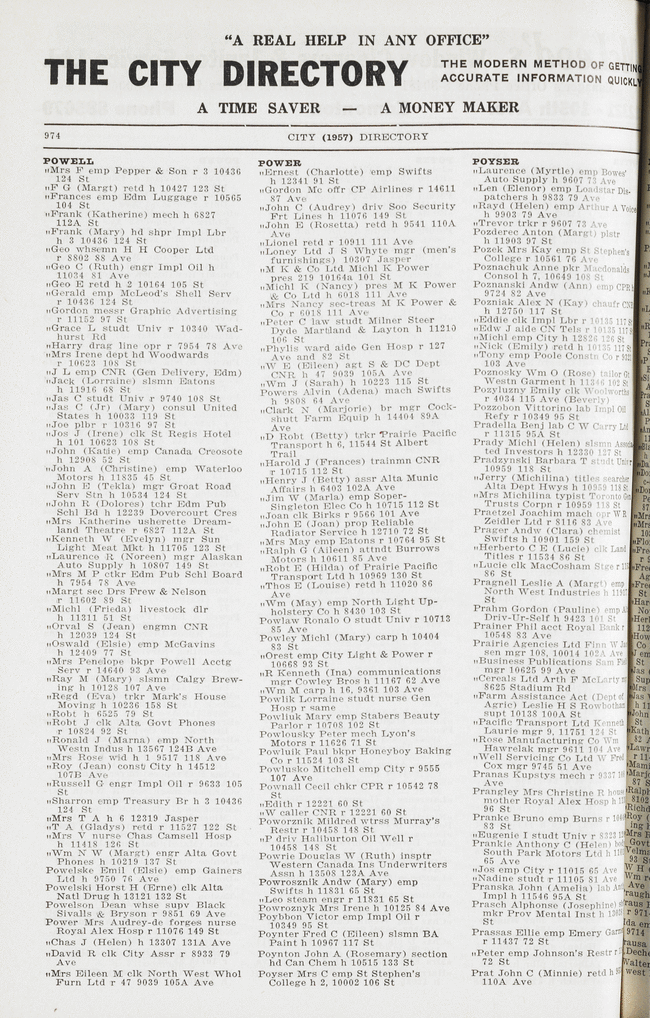 "A REAL HELP IN ANY OFFICE"
THE CITY DIRECTORY
THE MODERN METHOD OF GETTING
ACCURATE INFORMATION QUICKLY
A TIME SAVER — A MONEY MAKER
974
CITY (1957) DIRECTORY
POWELL
"Mrs F emp Pepper & Son r 3 10436
124 St
"F G (Margt) retd h 10427 123 St
"Frances emp Edm Luggage r 10565
104 St
"Frank (Katherine) mech h 6827
112A St
"Frank (Mary) hd shpr Impl Lbr
h 3 10436 124 St
"Geo whsemn H H Cooper Ltd
r 8802 88 Ave
"Geo C (Ruth) engr Impl Oil h
11024 81 Ave
"Geo E retd h 2 10164 105 St
"Gerald emp McLeod's Shell Serv
r 10436 124 St
"Gordon messr Graphic Advertising
r 11152 97 St
"Grace L studt Univ r 10340 Wad-
hurst Rd
"Harry drag line opr r 7954 78 Ave
"Mrs Irene dept hd Woodwards
r 10623 108 St
"J L emp CNR (Gen Delivery, Edm)
"Jack (Lorraine) slsmn Eatons
h 11916 68 St
"Jas C studt Univ r 9740 108 St
"Jas C (Jr) (Mary) consul United
States h 10033 119 St
"Joe plbr r 10316 97 St
"Jos J (Irene) clk St Regis Hotel
h 101 10623 108 St
"John (Katie) emp Canada Creosote
h 12908 52 St
"John A (Christine) emp Waterloo
Motors h 11835 45 St
"John E (Tekla) mgr Groat Road
Serv Stn h 10534 124 St
"John R (Dolores) tchr Edm Pub
Schl Bd h 12239 Dovercourt Cres
"Mrs Katherine usherette Dream-
land Theatre r 6827 112A St
"Kenneth W (Evelyn) mgr Sun
Light Meat Mkt h 11705 123 St
"Laurence R (Noreen) mgr Alaskan
Auto Supply h 10807 149 St
"Mrs M P ctkr Edm Pub Schl Board
h 7954 78 Ave
"Margt sec Drs Frew & Nelson
r 11602 89 St
"Michl (Frieda) livestock dlr
h 11311 51 St
"Orval S (Jean) engmn CNR
h 12039 124 St
"Oswald (Elsie) emp McGavins
h 12409 77 St
"Mrs Penelope bkpr Powell Acctg
Serv r 14640 93 Ave
"Ray M (Mary) slsmn Calgy Brew-
ing h 10128 107 Ave
"Regd (Eva) trkr Mark's House
Moving h 10236 158 St
"Robt h 6525 79 St
"Robt J clk Alta Govt Phones
r 10824 92 St
"Ronald J (Marna) emp North
Westn Indus h 13567 124B Ave
"Mrs Rose wid h 1 9517 118 Ave
"Roy (Jean) const City h 14512
107B Ave
"Russell G engr Impl Oil r 9633 105
St
"Sharron emp Treasury Br h 3 10436
124 St
"Mrs T A h 6 12319 Jasper
"T A (Gladys) retd r 11527 122 St
"Mrs V nurse Chas Camsell Hosp
h 11418 126 St
"Wm N W (Margt) engr Alta Govt
Phones h 10219 137 St
Powelske Emil (Elsie) emp Gainers
Ltd h 9750 76 Ave
Powelski Horst H (Erne) clk Alta
Natl Drug h 13121 132 St
Powelson Dean whse supv Black
Sivalls & Bryson r 9851 69 Ave
Power Mrs Audrey-de forges nurse
Royal Alex Hosp r 11076 149 St
"Chas J (Helen) h 13307 131A Ave
"David R clk City Assr r 8933 79
Ave
"Mrs Eileen M clk North West Whol
Furn Ltd r 47 9039 105A Ave
POWER
"Ernest (Charlotte) emp Swifts
h 12341 91 St
"Gordon Mc offr CP Airlines r 14611
87 Ave
"John C (Audrey) driv Soo Security
Frt Lines h 11076 149 St
"John E (Rosetta) retd h 9541 110A
Ave
"Lionel retd r 10911 111 Ave
"Loney Ltd J S Whyte mgr (men's
furnishings) 10307 Jasper
"M K & Co Ltd Michl K Power
pres 219 10164a 101 St
"Michl K (Nancy) pres M K Power
& Co Ltd h 6018 111 Ave
"Mrs Nancy sec-treas M K Power &
Co r 6018 111 Ave
"Peter C law studt Milner Steer
Dyde Martland & Layton h 11210
106 St
"Phyllis ward aide Gen Hosp r 127
Ave and 82 St
"W E (Eileen) agt S & DC Dept
CNR h 47 9039 105A Ave
"Wm J (Sarah) h 10223 115 St
Powers Alvin (Adena) mach Swifts
h 9808 64 Ave
"Clark N (Marjorie) br mgr Cock-
shutt Farm Equip h 14404 89A
Ave
"D Robt (Betty) trkr Prairie Pacific
Transport h 6, 11544 St Albert
Trail
"Harold J (Frances) trainmn CNR
r 10715 112 St
"Henry J (Betty) assr Alta Munic
Affairs h 6403 102A Ave
"Jim W (Marla) emp Soper-
Singleton Elec Co h 10715 112 St
"Joan clk Birks r 9566 101 Ave
"John E (Joan) prop Reliable
Radiator Service h 12710 72 St
"Mrs May emp Eatons r 10764 95 St
"Ralph G (Aileen) attndt Burrows
Motors h 10611 85 Ave
"Robt E (Hilda) of Prairie Pacific
Transport Ltd h 10969 130 St
"Thos E (Louise) retd h 11020 86
Ave
"Wm (May) emp North Light Up-
holstery Co h 8430 103 St
Powlaw Ronalo O studt Univ r 10713
85 Ave
Powley Michl (Mary) carp h 10404
83 St
"Orest emp City Light & Power r
10668 93 St
"R Kenneth (Ina) communications
mgr Cowley Bros h 11167 62 Ave
"Wm M carp h 16, 9361 103 Ave
Powlik Lorraine studt nurse Gen
Hosp r same
Powliuk Mary emp Stabers Beauty
Parlor r 10708 102 St
Powlousky Peter mech Lyon's
Motors r 11626 71 St
Powluik Paul bkpr Honeyboy Baking
Co r 11524 103 St
Powlusko Mitchell emp City r 9555
107 Ave
Pownall Cecil chkr CPR r 10542 78
St
"Edith r 12221 60 St
"W caller CNR r 12221 60 St
Poworznik Mildred wtrss Murray's
Restr r 10458 148 St
"P driv Haliburton Oil Well r
10458 148 St
Powrie Douglas W (Ruth) insptr
Western Canada Ins Underwriters
Assn h 13508 123A Ave
Powrosznik Andw (Mary) emp
Swifts h 11831 65 St
"Leo steam engr r 11831 65 St
Powroznyk Mrs Irene h 10125 84 Ave
Poybbon Victor emp Impl Oil r
10349 95 St
Poynter Fred C (Eileen) slsmn BA
Paint h 10967 117 St
Poynton John A (Rosemary) section
hd Can Chem h 10515 133 St
Poyser Mrs C emp St Stephen's
College h 2, 10002 106 St
POYSER
"Laurence (Myrtle) emp Bowes'
Auto Supply h 9607 73 Ave
"Len (Elenor) emp Loadstar Dis-
patchers h 9833 79 Ave
"Rayd (Helen) emp Arthur A Voice
h 9903 79 Ave
"Trevor trkr r 9607 73 Ave
Pozderec Anton (Margt) plstr
h 11903 97 St
Pozek Mrs Kay emp St Stephen's
College r 10561 76 Ave
Poznachuk Anne pkr Macdonalds
Consol h 7, 10649 108 St
Poznanski Andw (Ann) emp CPR
9724 82 Ave
Pozniak Alex N (Kay) chaufr
h 12750 117 St
"Eddie clk Impl Lbr r 10135 117 St
"Edw J aide CN Tels r 10135 117
"Michl emp City h 12826 126 St
"Nick (Emily) retd h 10135
"Tony emp Poole Constn Co r
103 Ave
Poznosky Wm O (Rose) tailor
Westn Garment h 11346 102 St
Pozyluzny Emily clk Woolworths
r 4034 115 Ave (Beverly)
Pozzobon Vittorino lab Impl Oil
Refy r 10349 95 St
Pradella Benj lab C W Carry Ltd
r 11315 95A St
Prady Michl (Helen) slsmn
ted Investors h 12330 127 St
Pradzynski Barbara T studt Univ
10959 118 St
"Jerry (Michilina) titles searcher
Alta Dept Hwys h 10959 118 St
"Mrs Michilina typist Toronto
Trusts Corpn r 10959 118 St
Praetzel Joachim mach opr W R
Zeidler Ltd r 8116 83 Ave
Prager Andw (Clara) chemist
Swifts h 10901 159 St
"Herberto C E (Lucie) clk Land
Titles r 11534 86 St
"Lucie clk MacCosham Stge r
86 St
Pragnell Leslie A (Margt) emp
North West Industries h
St
Prahm Gordon (Pauline) emp
Driv-Ur-Self h 9423 101 St
Prainer Phil acct Royal Bank r
10548 83 Ave
Prairie Agencies Ltd Finn W
sen mgr 108, 10014 102A Ave
"Business Publications Sam
mgr 10625 99 Ave
"Cereals Ltd Arth F McLarty
8625 Stadium Rd
"Farm Assistance Act (Dept of
Agric) Leslie H S Rowbotham
supt 10138 100A St
"Pacific Transport Ltd Kenneth
Laurie mgr 9, 11751 124 St
"Rose Manufacturing Co Wm
Hawrelak mgr 9611 104 Ave
"Well Servicing Co Ltd W
Cox mgr 9745 51 Ave
Pranas Kupstys mech r 9337
Ave
Prangley Mrs Christine R house
mother Royal Alex Hosp h
96 St
Pranke Bruno emp Burns r
83 St
"Eugenie I studt Univ r 8323
Prankie Anthony C (Helen)
South Park Motors Ltd h
65 Ave
"Jos emp City r 11015 65 Ave
"Nadine studt r 11105 81 Ave
Pranska John (Amelia) lab
Impl h 11546 95A St
Prasch Alphonse (Josephine)
mkr Prov Mental Inst h
St
Prassas Ellie emp Emery
r 11437 72 St
"Peter emp Johnson's Restr r
72 St
Prat John C (Minnie) retd h
110A Ave